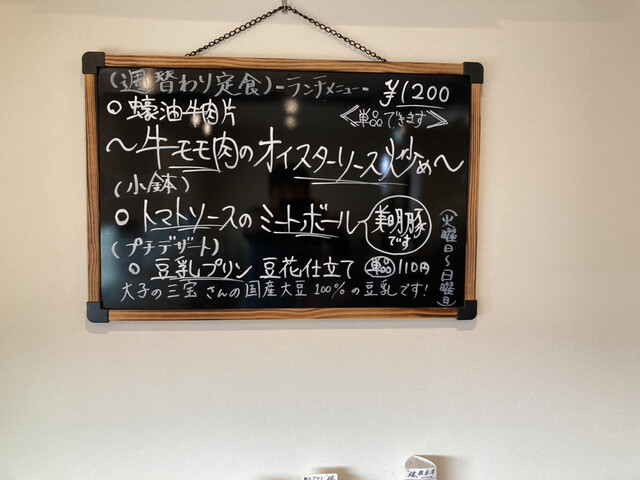 (週替わり定食)-ランチメニュー- ¥1200
○蠔油牛肉片 <単品できます>
～牛モモ肉のオイスターソース炒め～
(小鉢)
○トマトソースのミートボール 美明豚です
(プチデザート)
○豆乳プリン 豆花仕立て 単品110円
大子の三宝さんの国産大豆100%の豆乳です!
(火曜日～日曜日)